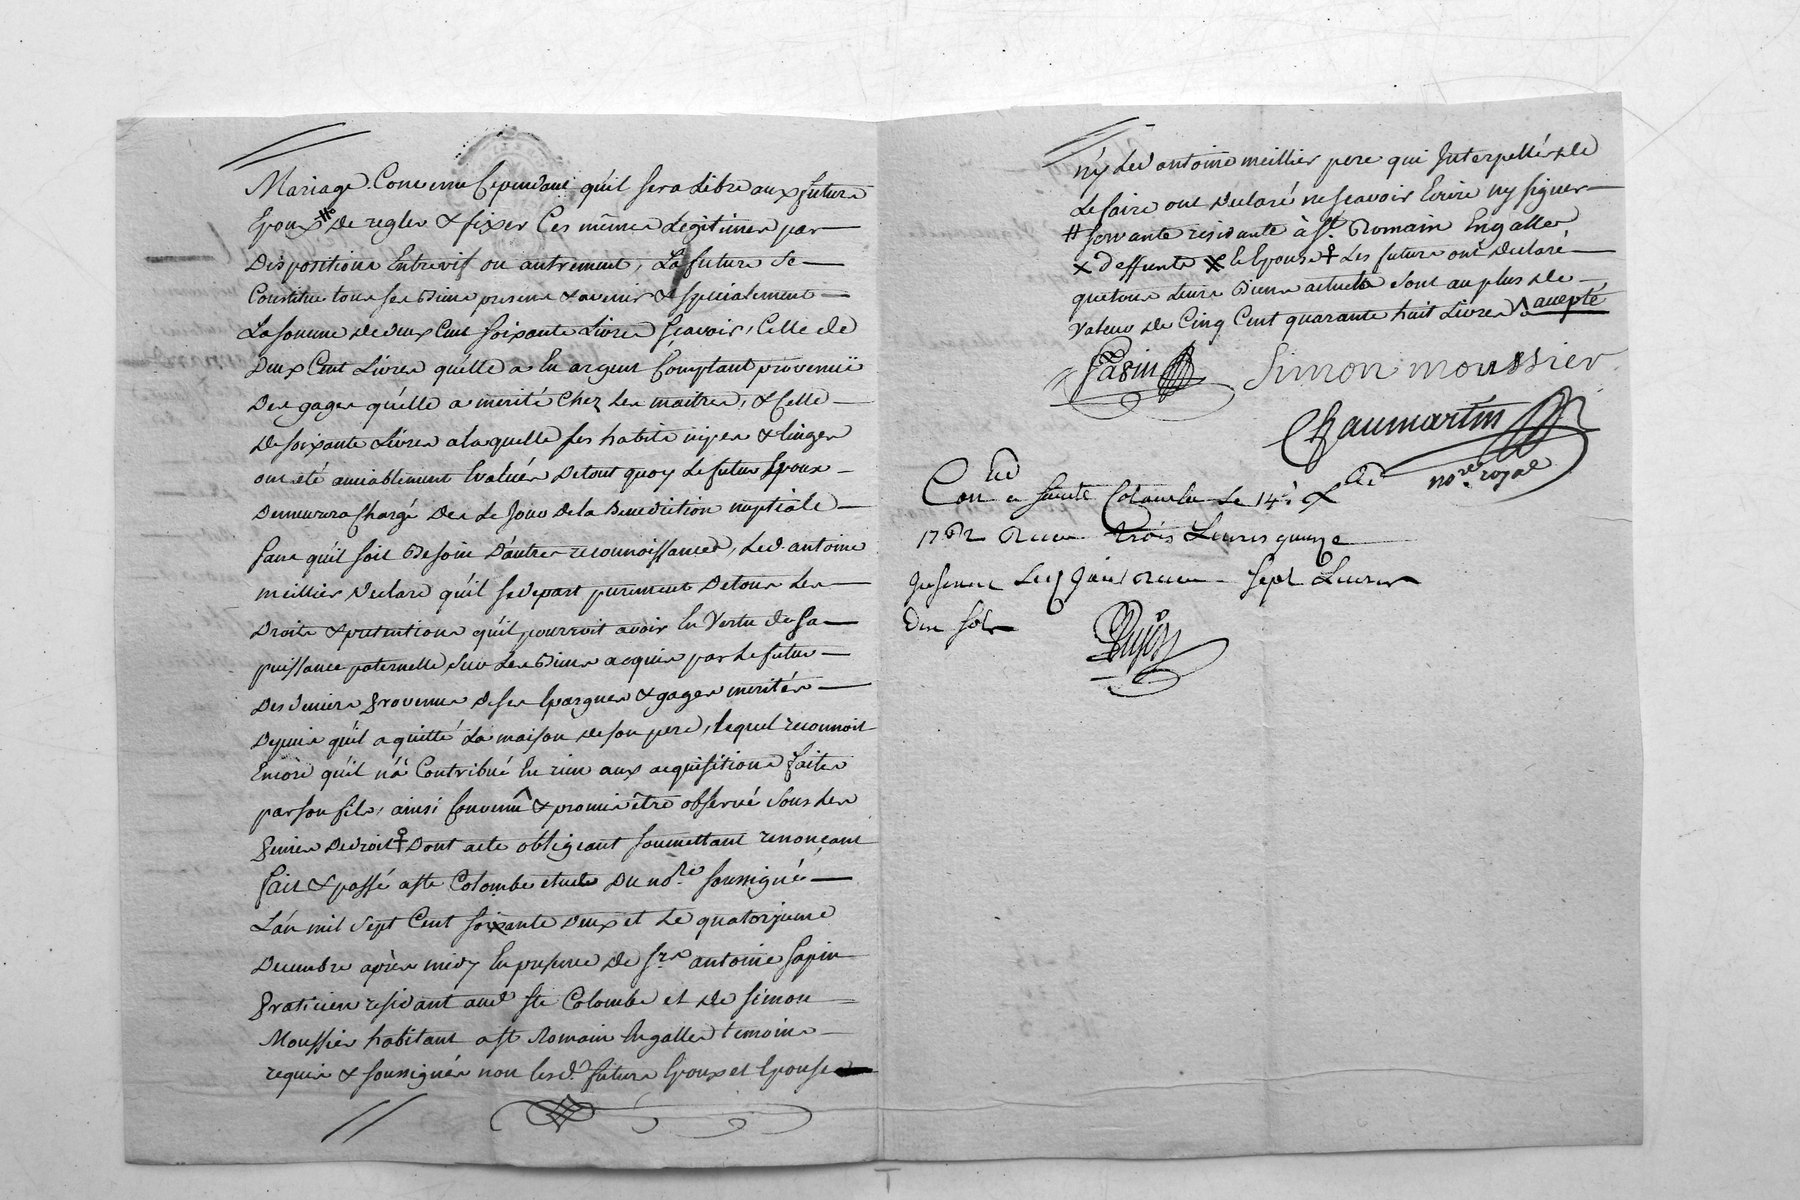 Mariage. Convenu Cependant qu'il sera Libre aux futurs
Epoux # De regler & fixer Ces mêmes Legitimes par
Dispositions Entrevif ou autrement, La future se
Constitue tous ses Biens presens & avenir & specialement
La somme de deux Cent soixante Livres scavoir, Celle de
Deux Cent Livres qu'elle a En argent Comptant provenüe
Des gages qu'elle a merité Chez Les maitres, & Celle
De soixante Livres a laquelle ses habits nipes & linges
ont été amiablement Evalués De tout quoy Le futur Epoux
Demeurera Chargé Des Le Jour De la Benediction nuptiale
sans qu'il soit Besoin D'autres reconnoissances, Led. antoine
meillier Declare qu'il se depart purement De tous Les
Droits & pretentions qu'il pourroit avoir En Vertu de sa
puissance paternelle sur Les Biens acquis par Le futur
Des deniers Provenus De ses Epargnes & gages merités
Depuis qu'il a quitté La maison de son pere, lequel reconnoit
Encore qu'il n'a Contribué En rien aux acquisitions faites
par son fils, ainsi Convenu & promis être observé sous Les
Peines de droit ☨ Dont acte obligeant soumettant renonçant
fait & passé a Ste Colombe etude Du no.re soussigné
L'an mil sept Cent soixante Deux et Le quatorzieme
Decembre après midy En presence de Sr. antoine sapin
Praticien residant aud. Ste Colombe et de simon
Moussier habitant a St Romain En gallier temoins
requis & soussignés non lesd. futurs Epoux et Epouse
ny Led antoine meillier pere qui Interpellés de
Le faire ont declaré ne scavoir Ecrire ny signer
# servante residante à St. Romain En gallier
x deffunte x Le Epouse ☨ Les futurs ont declaré
que tous Leurs Biens actuels sont au plus de
Valeur de Cinq Cent quarante huit Livres ^ accepté
Sapin Simon moussier
Chaumartin
no.re royal
Con.lé a Sainte Colombe Le 14e Xbre
1762 Recu trois Livres quinze
sept Livres
Dix sols